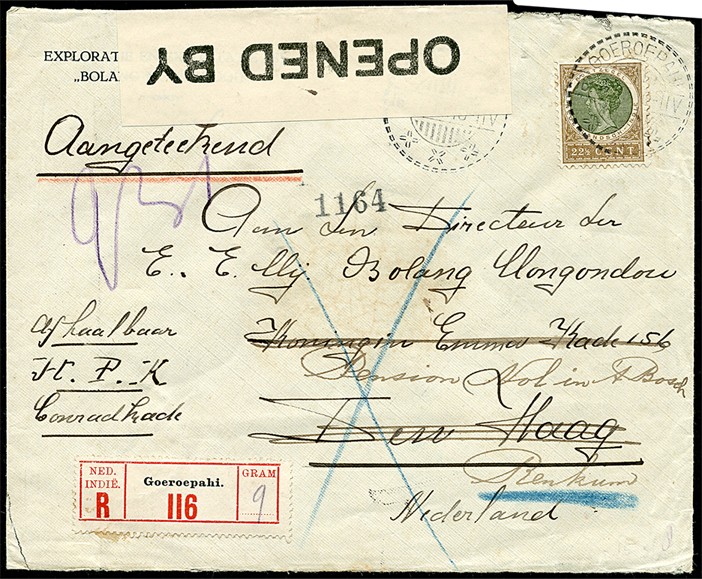 OPENED BY
EXPLORAT
„BOLA
GOEROEPAHI
22½ CENT
Aangeteekend
1164
Aan den Directeur der
E. E. Mij Bolang Mongondou
Koningin Emma Kade 156
Pension Nol in 't Bosch
Den Haag
Renkum
Nederland
afhaalbaar
H. P. K
Conradkade
NED. INDIË.
R
Goeroepahi.
116
GRAM
9